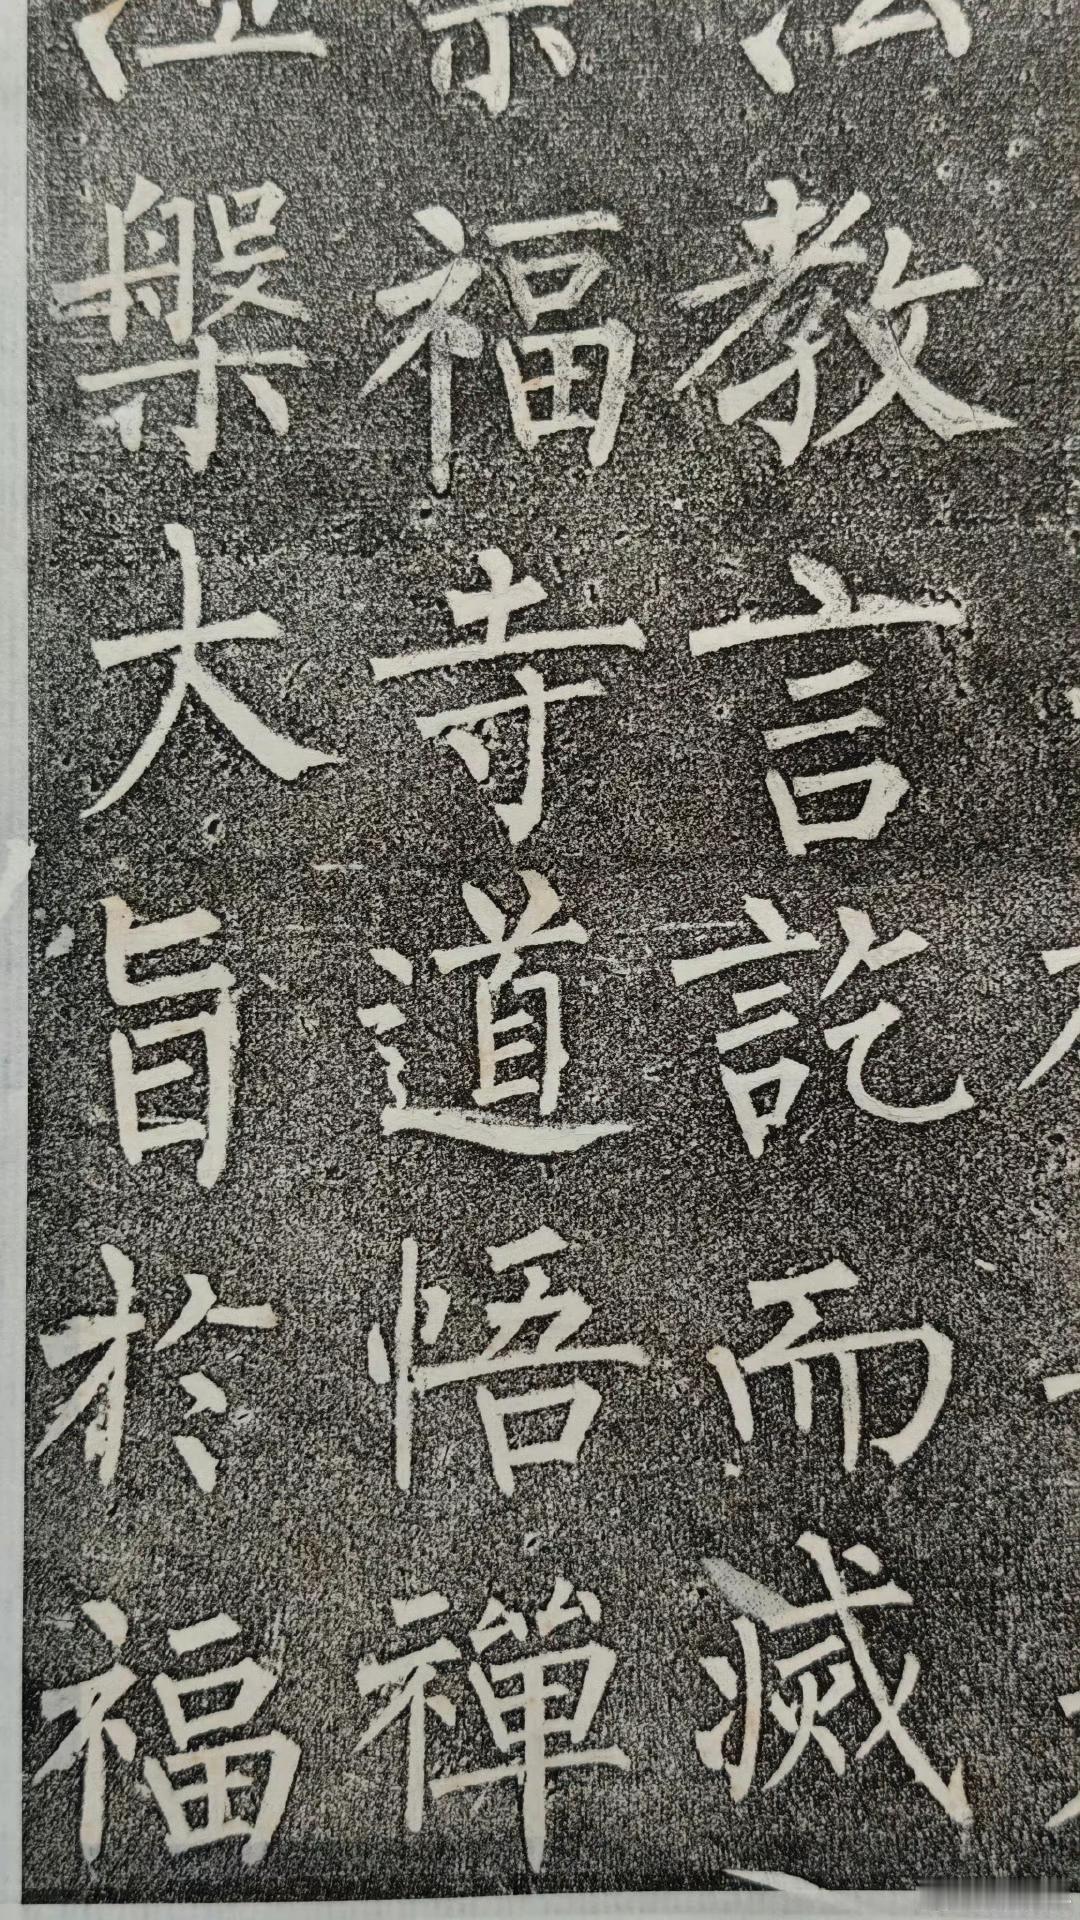 教言訖而滅
福寺道悟禪
槃大旨於福